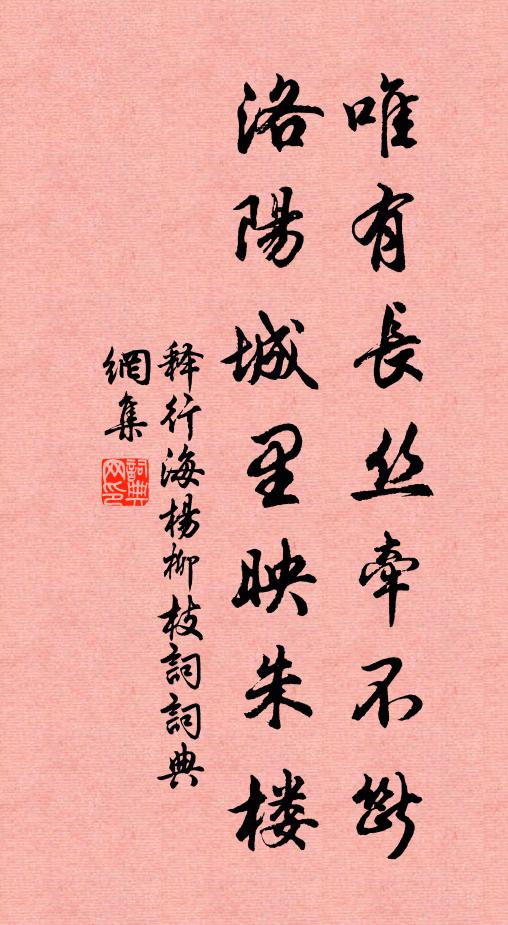 唯有長丝牽不斷
洛陽城里映朱楼
释行海楊柳枝詞詞典
網集
詞典
网印